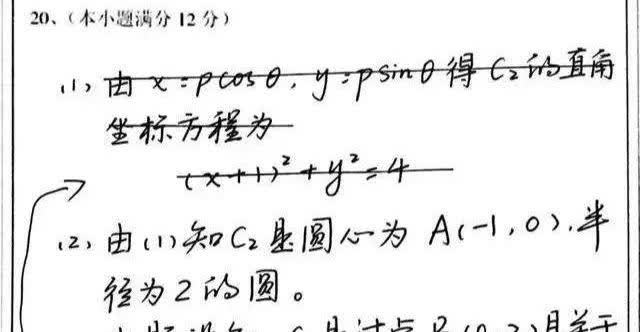 20、（本小题满分 12 分）
(1) 由 x=ρcosθ, y=ρsinθ 得 C₂的直角
坐标方程为
(x+1)²+y²=4
(2) 由(1)知C₂是圆心为 A(-1,0),半
径为2的圆。